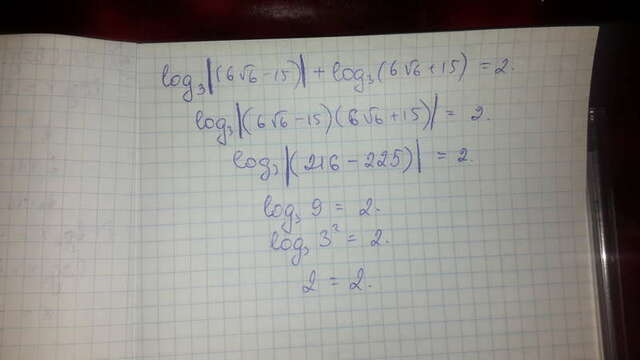 log₃|(6√6-15)| + log₃(6√6+15) = 2.
log₃|(6√6-15)(6√6+15)| = 2.
log₃|(216-225)| = 2.
log₃ 9 = 2.
log₃ 3² = 2.
2 = 2.